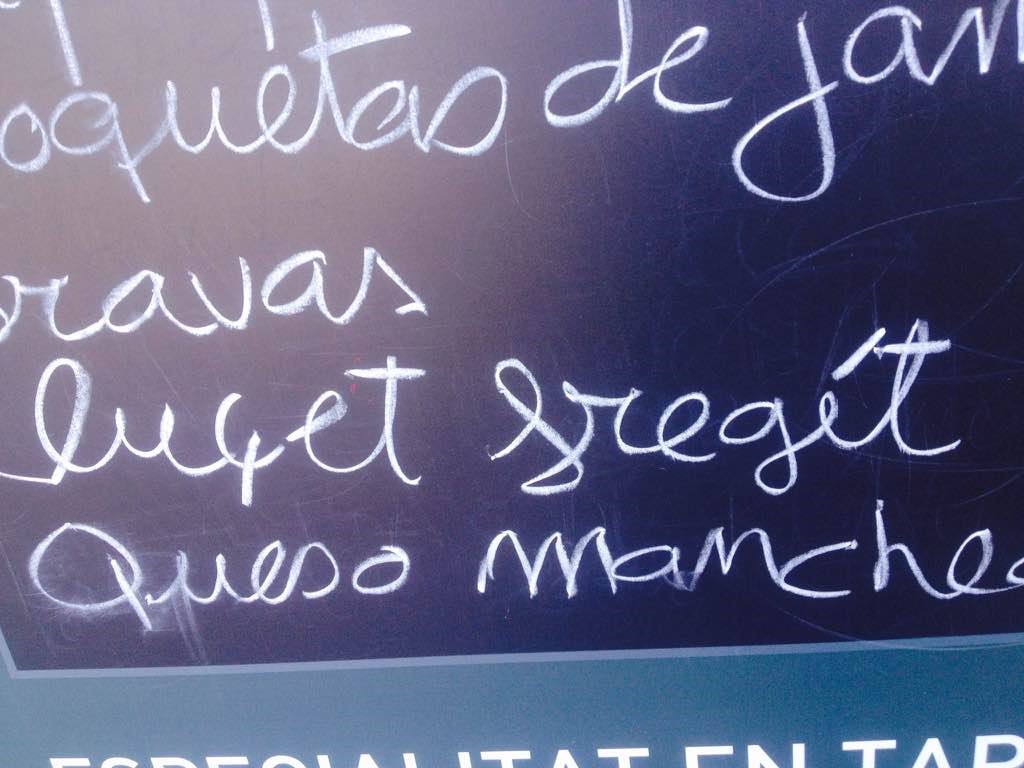 oquetas de jam
ravas
lluçet fregit
Queso manche
ESPECIALITAT EN TAP